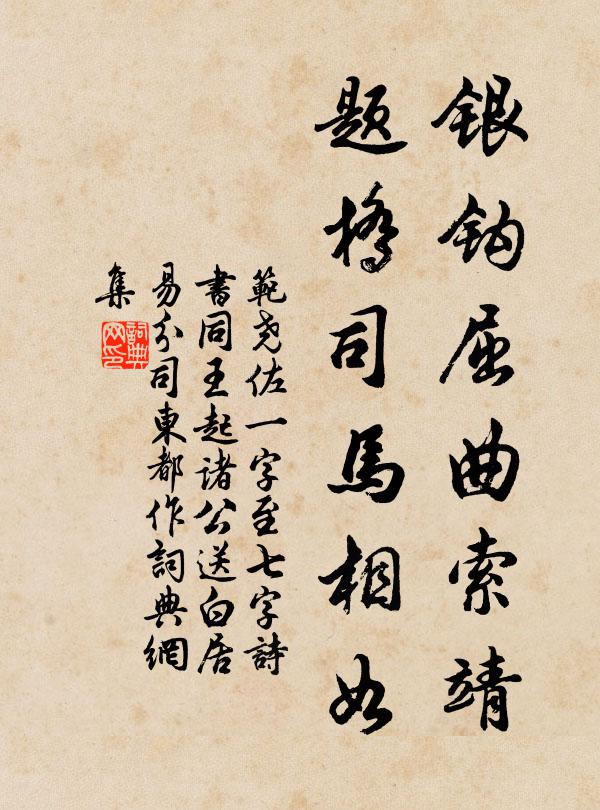 银钩屈曲索靖
题桥司马相如
範尧佐一字至七字詩
書同王起诸公送白居
易分司東都作詞典網
集
詞典
网印